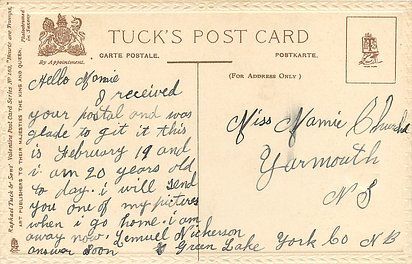 TUCK'S POST CARD
By Appointment.
CARTE POSTALE.
POSTKARTE.
(FOR ADDRESS ONLY)
Raphael Tuck & Sons' Valentine Post Card Series No. 102, "Hearts are Trumps,"
ART PUBLISHERS TO THEIR MAJESTIES THE KING AND QUEEN.
Hello Namie
I received
your postal and was
glade to git it this
is February 19 and
i am 20 years old
to day. i will send
you one of my pictures
when i go home. i am
away now. Lemuel Nickerson
answer soon Green Lake York Co NB
Miss Namie
Yarmouth
N S